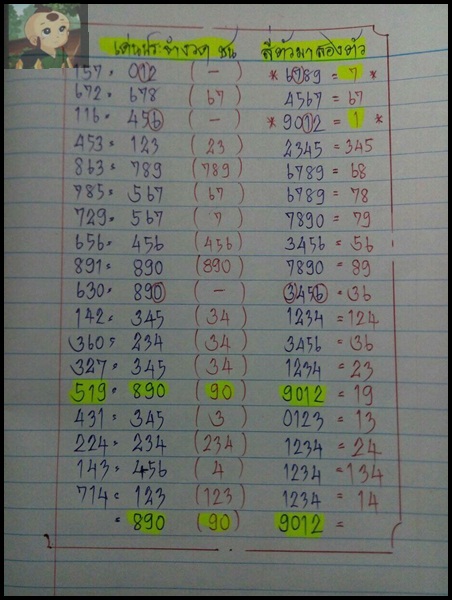 เด่นประจำงวด ชน สี่ตัวมาสองตัว
157 = 012 ( - ) * 6789 = 7 *
672 = 678 ( 67 ) 4567 = 67
116 = 456 ( - ) * 9012 = 1 *
453 = 123 ( 23 ) 2345 = 345
863 = 789 ( 789 ) 6789 = 68
785 = 567 ( 67 ) 6789 = 78
729 = 567 ( 7 ) 7890 = 79
656 = 456 ( 456 ) 3456 = 56
891 = 890 ( 890 ) 7890 = 89
630 = 890 ( - ) 3456 = 36
142 = 345 ( 34 ) 1234 = 124
360 = 234 ( 34 ) 3456 = 36
327 = 345 ( 34 ) 1234 = 23
519 = 890 ( 90 ) 9012 = 19
431 = 345 ( 3 ) 0123 = 13
224 = 234 ( 234 ) 1234 = 24
143 = 456 ( 4 ) 1234 = 134
714 = 123 ( 123 ) 1234 = 14
= 890 ( 90 ) 9012 =